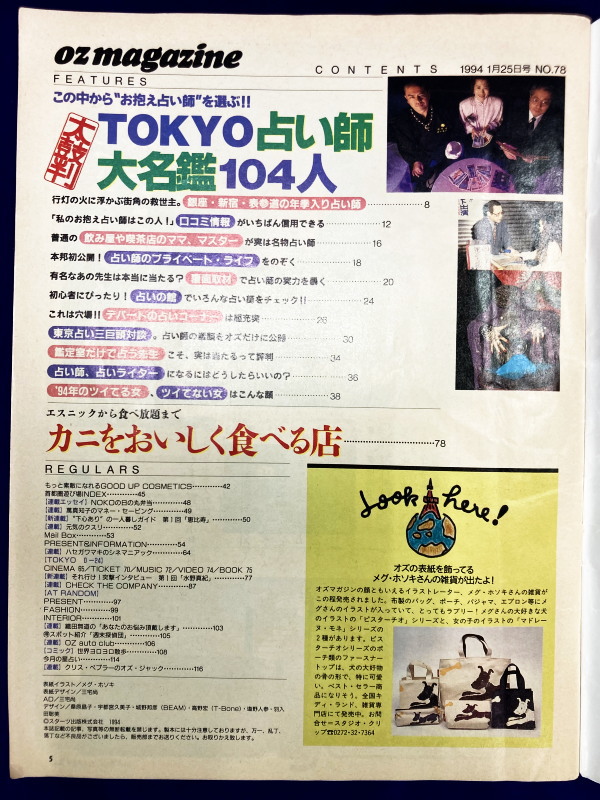 oz magazine
CONTENTS 1994 1月25日号 NO.78
FEATURES
この中から“お抱え占い師”を選ぶ!!
太鼓判
TOKYO占い師
大名鑑104人
行灯の火に浮かぶ街角の救世主。銀座・新宿・表参道の年季入り占い師 8
「私のお抱え占い師はこの人!」口コミ情報がいちばん信用できる 12
普通の飲み屋や喫茶店のママ、マスターが実は名物占い師 16
本邦初公開!占い師のプライベート・ライフをのぞく 18
有名なあの先生は本当に当たる?覆面取材で占い師の実力を暴く 20
初心者にぴったり!占いの館でいろんな占い師をチェック!! 24
これは穴場!!デパートの占いコーナーは超充実 28
東京占い三巨頭対談。占い師の素顔もオズだけに公開 30
鑑定室だけで占う先生こそ、実は当たるって評判 34
占い師、占いライターになるにはどうしたらいいの? 36
'94年のツイてる女、ツイてない女はこんな顔 38
エスニックから食べ放題まで
カニをおいしく食べる店 78
REGULARS
もっと素敵になれるGOOD UP COSMETICS 42
首都圏遊び場INDEX 45
[連載エッセイ] NOKOの日の丸弁当 48
[連載] 萬真知子のマネー・セービング 49
[新連載] “下心あり”の一人暮しガイド 第1回「恵比寿」 50
[連載] 元気のクスリ 52
Mail Box 53
PRESENT&INFORMATION 54
[連載] ハセガワマキのシネマニアック 64
[TOKYO 0-24]
CINEMA 65/TICKET 70/MUSIC 72/VIDEO 74/BOOK 75
[新連載] それ行け!突撃インタビュー 第1回「水野真紀」 77
[連載] CHECK THE COMPANY 87
[AT RANDOM]
PRESENT 97
FASHION 99
INTERIOR 101
[連載] 織田無道の「あなたのお悩み頂戴します」 103
㊕スポット紹介「週末探偵団」 105
[連載] OZ auto club 106
[コミック] 世界ヨロヨロ散歩 108
今月の星占い 114
[連載] クリス・ペプラーのオズ・ジャック 116
表紙イラスト/メグ・ホソキ
表紙デザイン/三宅尚
AD/三宅尚
©スターツ出版株式会社 1994
本誌記載の記事、写真等の無断転載を禁じます。製本には十分注意しておりますが、万一、乱丁、
落丁など不良品がございましたら、販売部までお送りください。お取りかえ致します。
5
Look here!
オズの表紙を飾ってる
メグ・ホソキさんの雑貨が出たよ!
オズマガジンの顔ともいえるイラストレーター、メグ・ホソキさんの雑貨が
この程発売されました。布製のバッグ、ポーチ、パジャマ、エプロン等にメ
グさんのイラストが入っていて、とってもラブリー!メグさんの大好きな犬
のイラストの「ピスターチオ」シリーズと、女の子のイラストの「マドレー
ヌ・モネ」シリーズの
2種があります。ピス
ターチオシリーズのポ
ーチ類のファースナー
トップは、犬の大好物
の骨の形で、特に可愛
い。ベスト・セラー商
品になりそう。全国キ
ディ・ランド、雑貨専
門店にて発売中。お問
合せ=スタジオ・クリ
ップ☎0272・32・7364